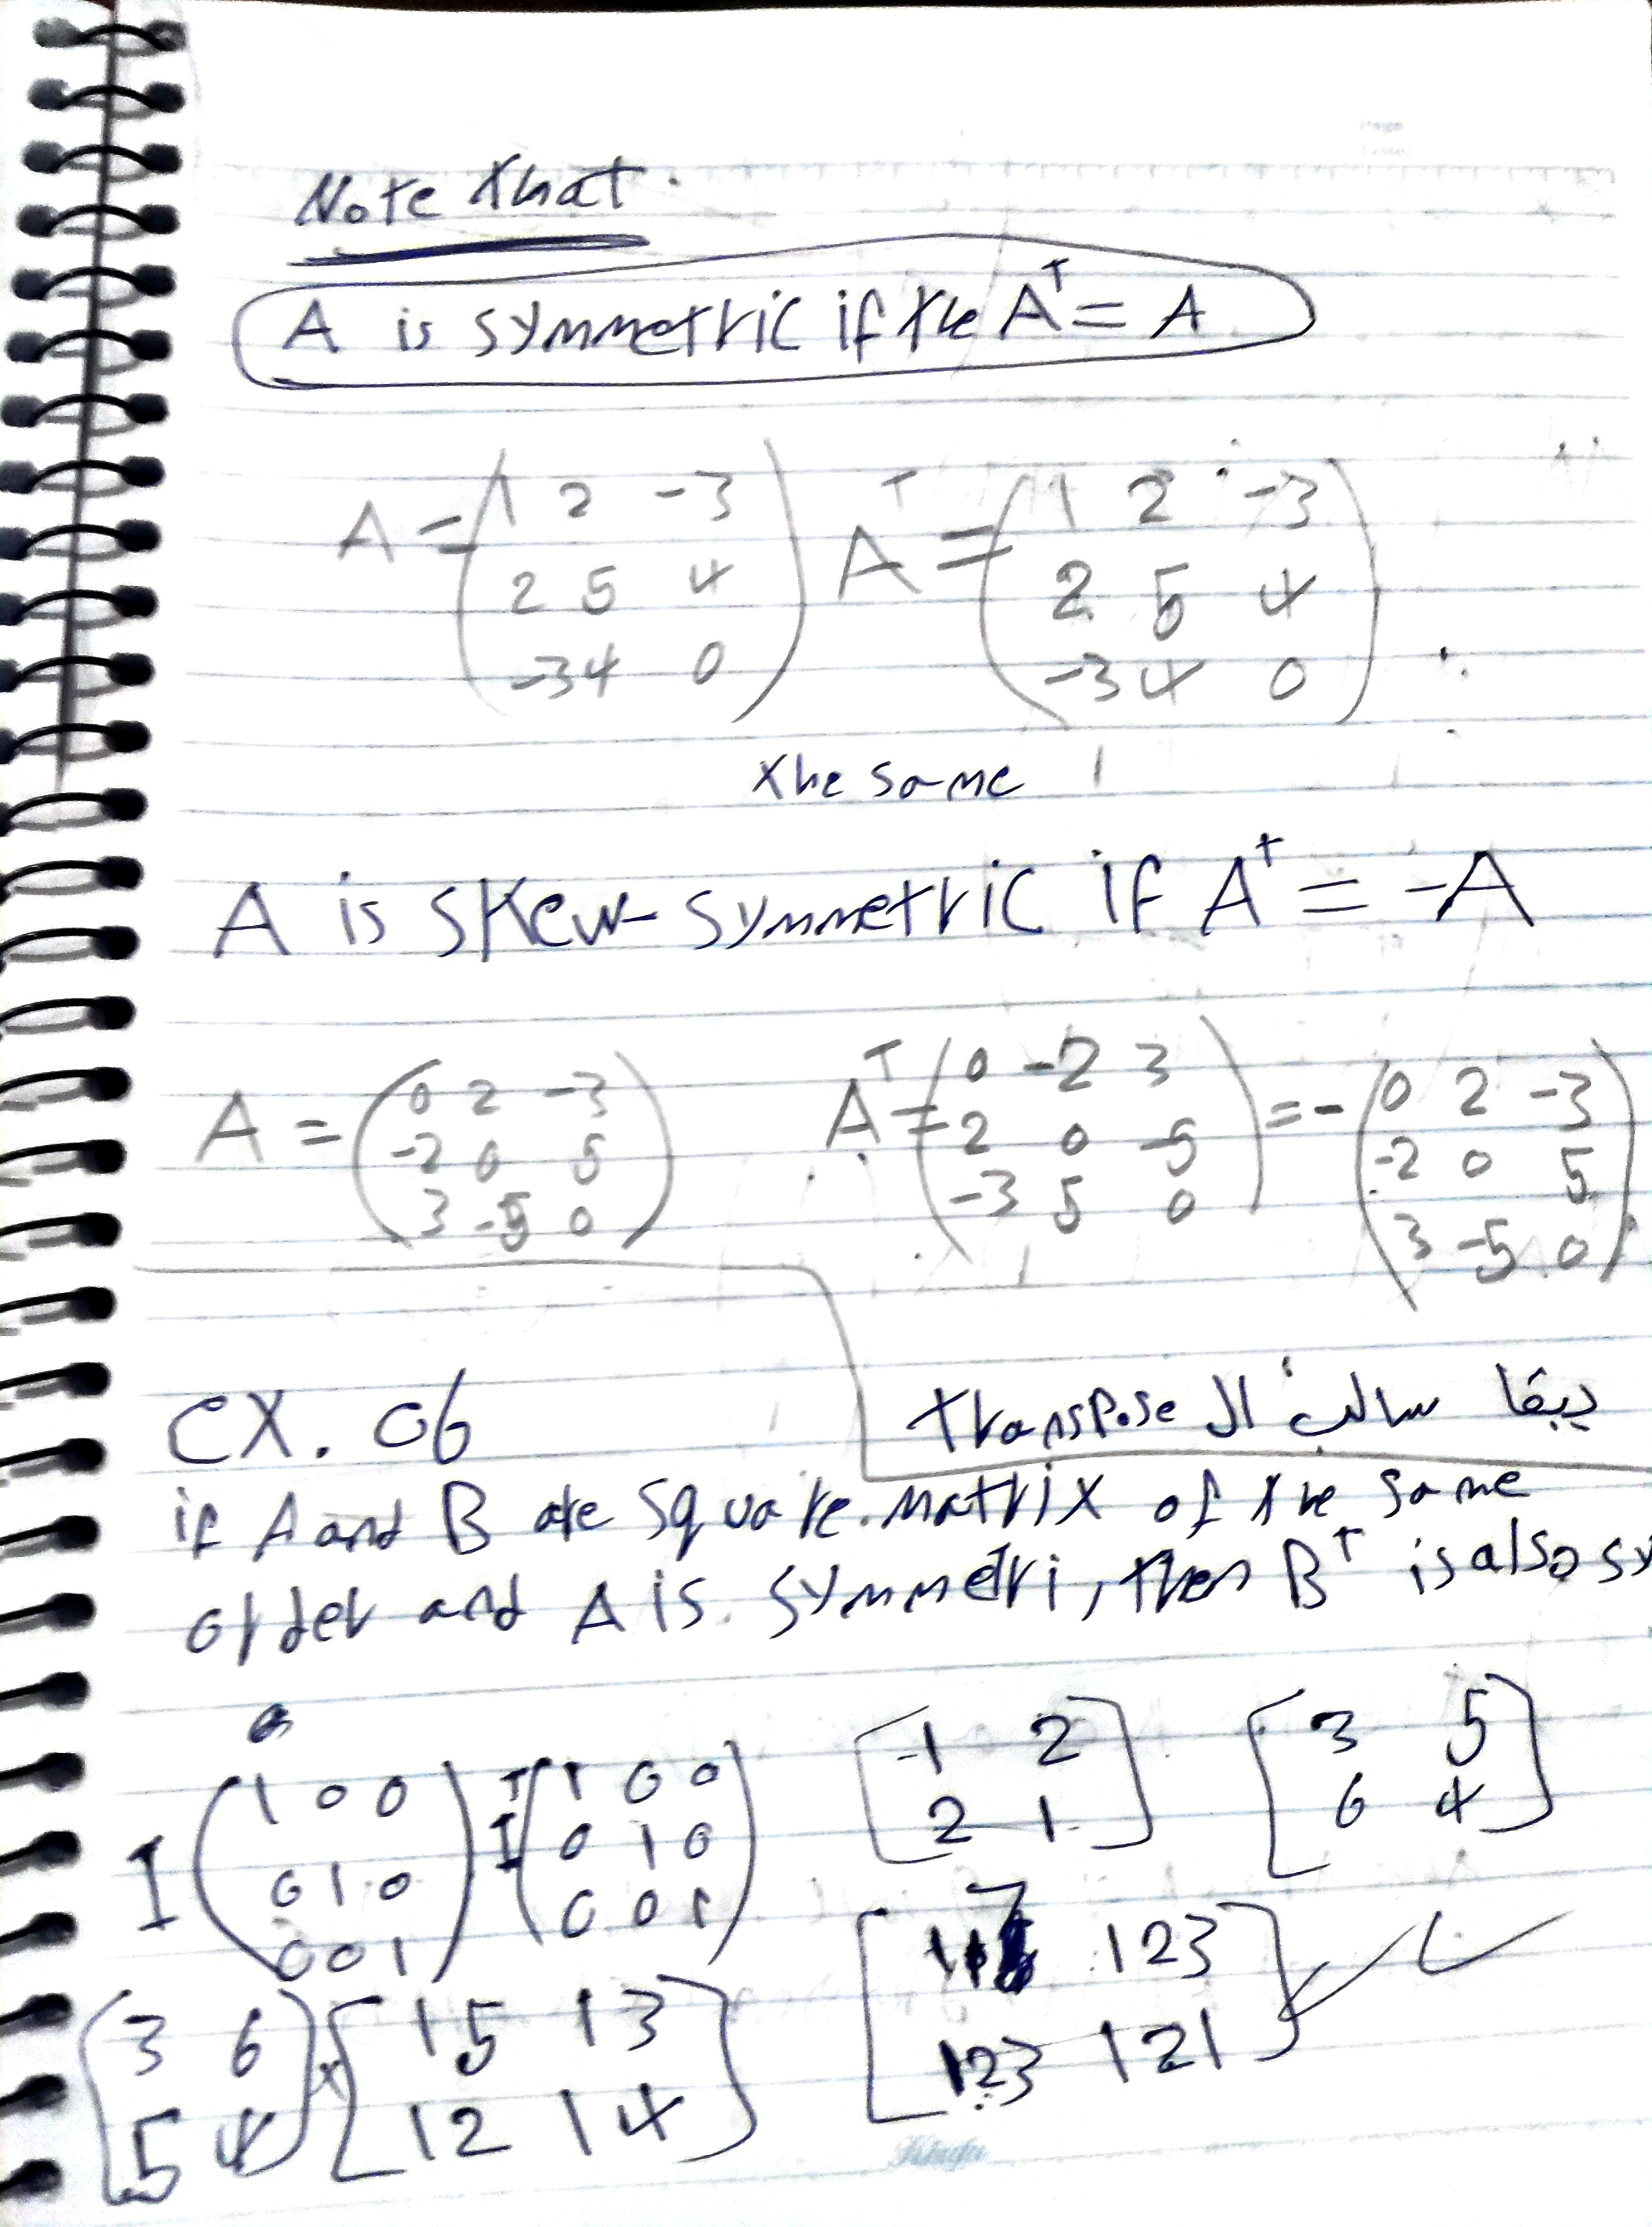 Note that
A is symmetric if the Aᵀ = A
A = (1 2 -3
2 5 4
-3 4 0)
Aᵀ = (1 2 -3
2 5 4
-3 4 0)
the same
A is skew-symmetric if Aᵀ = -A
A = (0 2 -3
-2 0 5
3 -5 0)
Aᵀ = (0 -2 3
2 0 -5
-3 5 0)
= - (0 2 -3
-2 0 5
3 -5 0)
transpose ال
ex. 06
if A and B are square matrix of the same
order and A is symmetri, then Bᵀ is also sy
I (1 0 0
0 1 0
0 0 1)
Iᵀ (1 0 0
0 1 0
0 0 1)
[-1 2
2 1]
[3 5
6 4]
[3 6
5 4] x [15 13
12 14]
[117 123
123 121]
Kinga